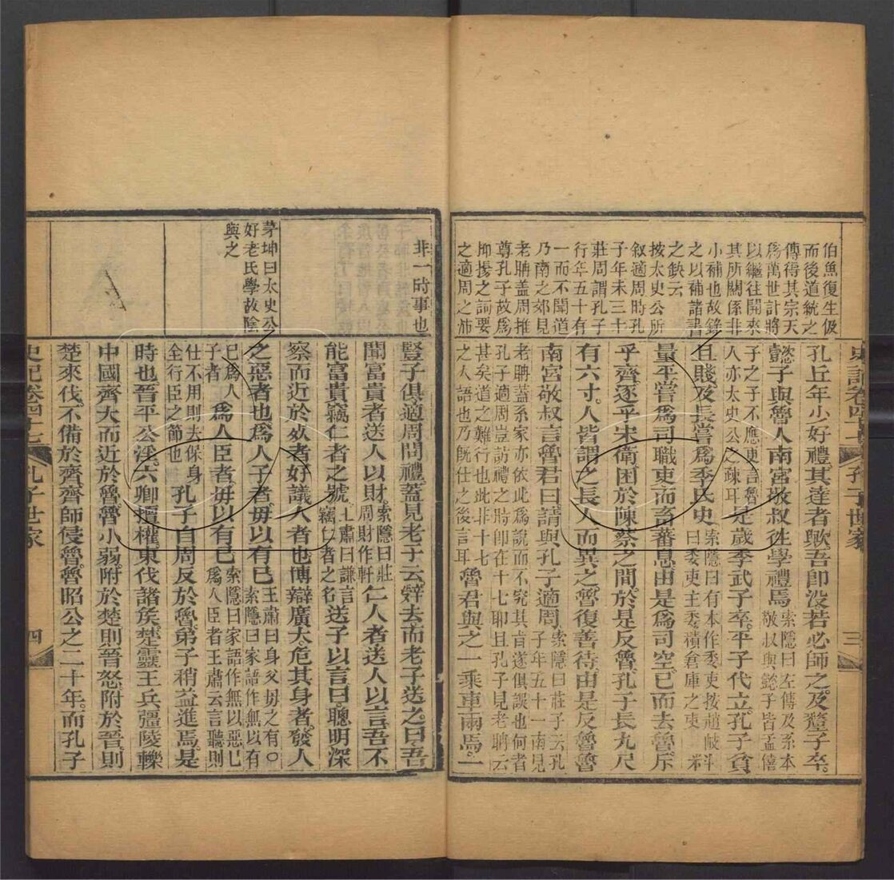 伯魚復生伋
而後道統之
傳得其宗天
爲萬世計將
以繼往開來
其所關係非
小補也故錄
之以補諸書
之缺云
按太史公所
叙適周時孔
子年未三十
莊周謂孔子
行年五十有
一而不聞道
乃南之郊見
老聃蓋周推
尊孔子故爲
抑揚之詞要
之適周之
史記卷四十七 孔子世家 三
孔丘年少好禮其達者歟吾卽没若必師之及釐子卒
懿子與魯人南宮敬叔徃學禮焉索隱曰左傳及系本敬叔與懿子皆孟僖
子之子不應更言魯人亦太史公之疎耳是歲季武子卒平子代立孔子貧
且賤及長嘗爲季氏史索隱曰有本作委吏按趙岐曰委吏主委積倉庫之吏料
量平嘗爲司職吏而畜蕃息由是爲司空已而去魯斥
乎齊逐乎宋衛困於陳蔡之間於是反魯孔子長九尺
有六寸人皆謂之長人而異之魯復善待由是反魯魯
南宮敬叔言魯君曰請與孔子適周索隱曰莊子云孔子年五十一南見
老聃蓋系家亦依此爲說而不究其旨遂俱誤也何者孔子適周豈訪禮之時卽在十七耶且孔子見老聃云
甚矣道之難行也此非十七之人語也乃旣仕之後言耳魯君與之一乘車兩馬一
非一時事也
茅坤曰太史公
好老氏學故陰
與之
豎子俱適周問禮蓋見老子云辭去而老子送之曰吾
聞富貴者送人以財索隱曰莊周財作軒仁人者送人以言吾不
能富貴竊仁者之號王肅曰謙言竊仁者之名送子以言曰聰明深
察而近於死者好議人者也博辯廣大危其身者發人
之惡者也爲人子者毋以有己王肅曰身父母之有○索隱曰家語作無以有
己爲人子者爲人臣者毋以有己索隱曰家語作無以惡己爲人臣者王肅云言聽則
仕不用則去保身全行臣之節也孔子自周反於魯弟子稍益進焉是
時也晉平公淫六卿擅權東伐諸侯楚靈王兵彊陵轢
中國齊大而近於魯魯小弱附於楚則晉怒附於晉則
楚來伐不備於齊齊師侵魯魯昭公之二十年而孔子
史記卷四十七 孔子世家 四